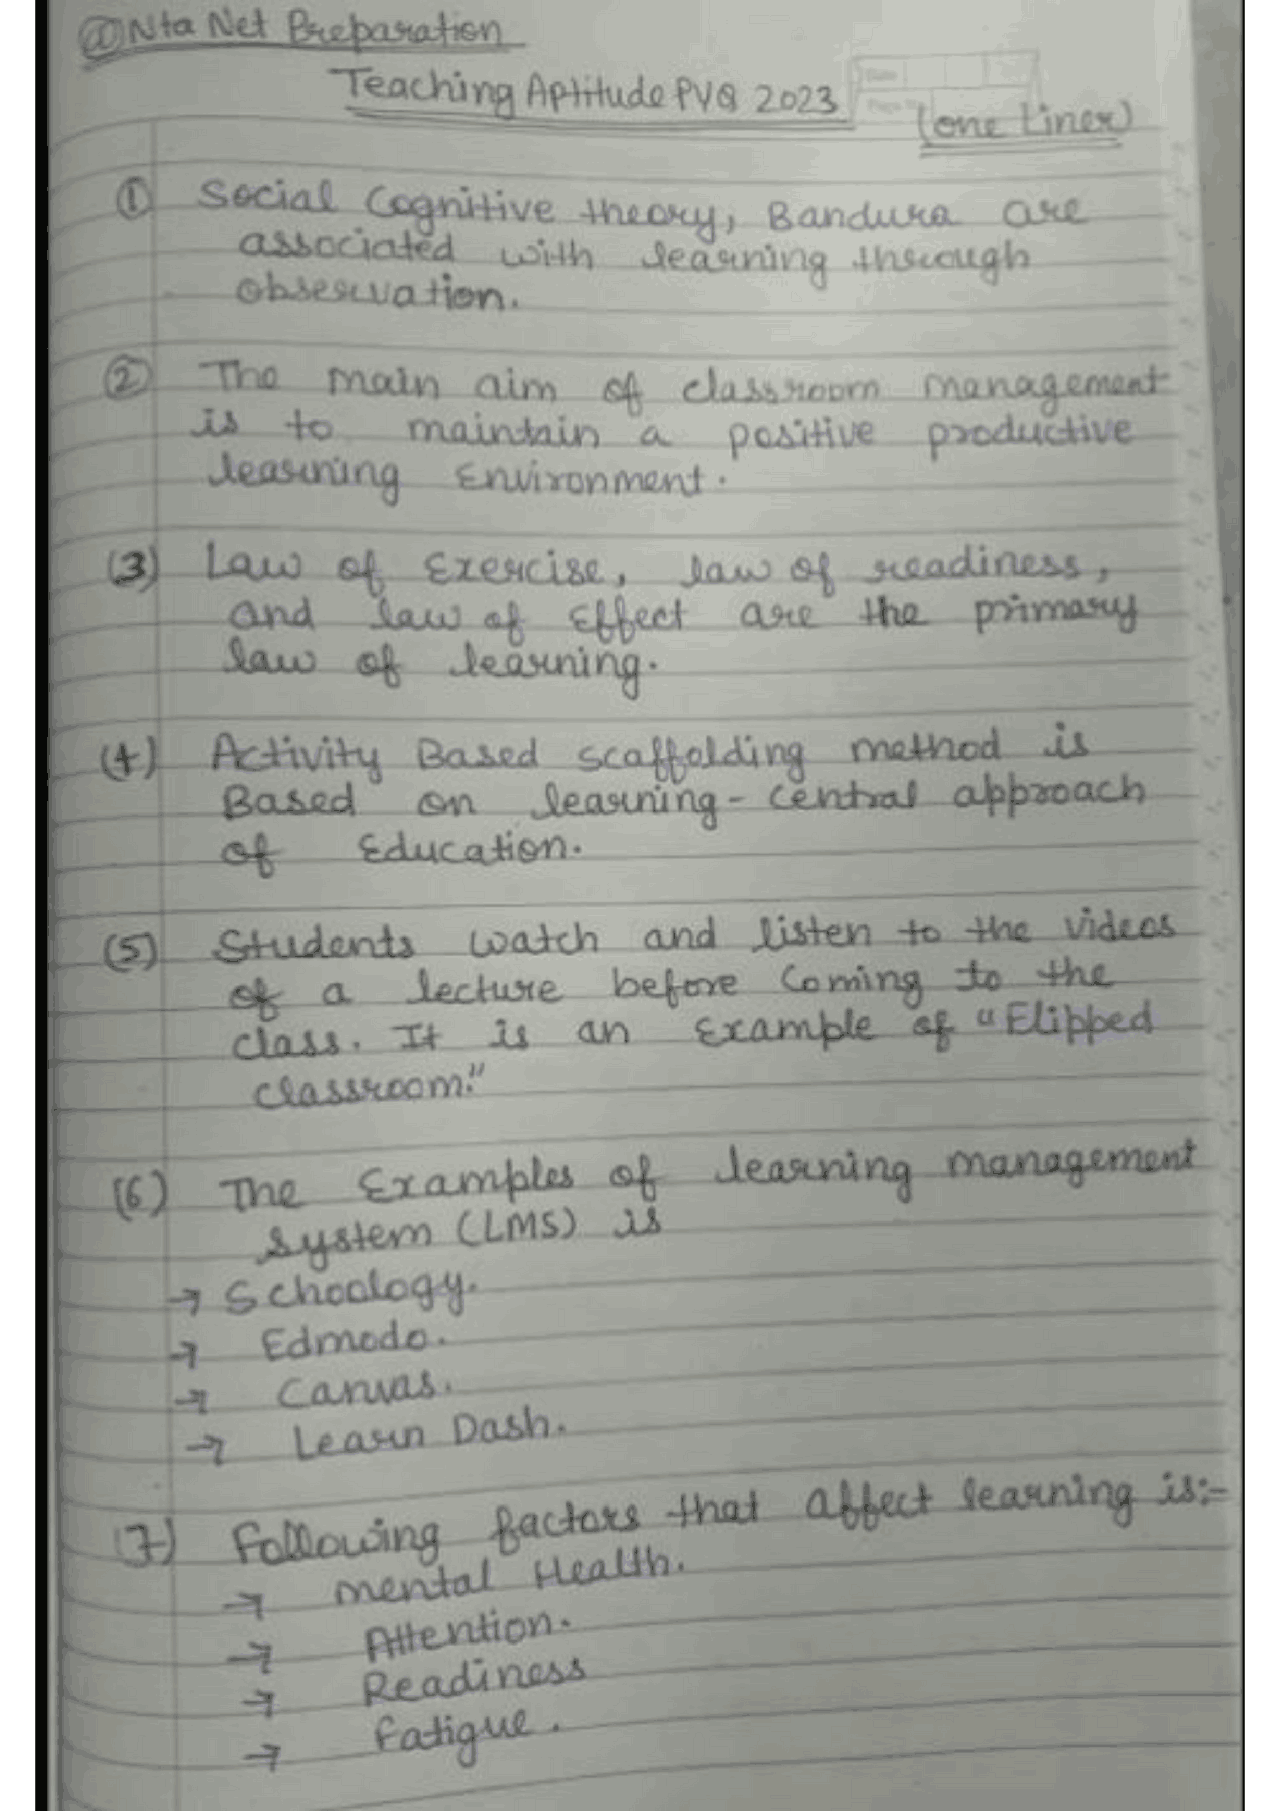 @Nta Net Preparation
Teaching Aptitude PVQ 2023
(one Liner)
① Social Cognitive theory, Bandura are
associated with learning through
observation.
② The main aim of classroom management
is to maintain a positive productive
learning Environment.
(3) Law of Exercise, law of readiness,
and law of Effect are the primary
law of learning.
(4) Activity Based scaffolding method is
Based on learning - central approach
of Education.
(5) Students watch and listen to the videos
of a lecture before coming to the
class. It is an Example of "Flipped
classroom."
(6) The Examples of learning management
system (LMS) is
→ Schoology.
→ Edmodo.
→ Canvas.
→ Learn Dash.
(7) Following factors that affect learning is:-
→ mental Health.
→ Attention.
→ Readiness
→ Fatigue.